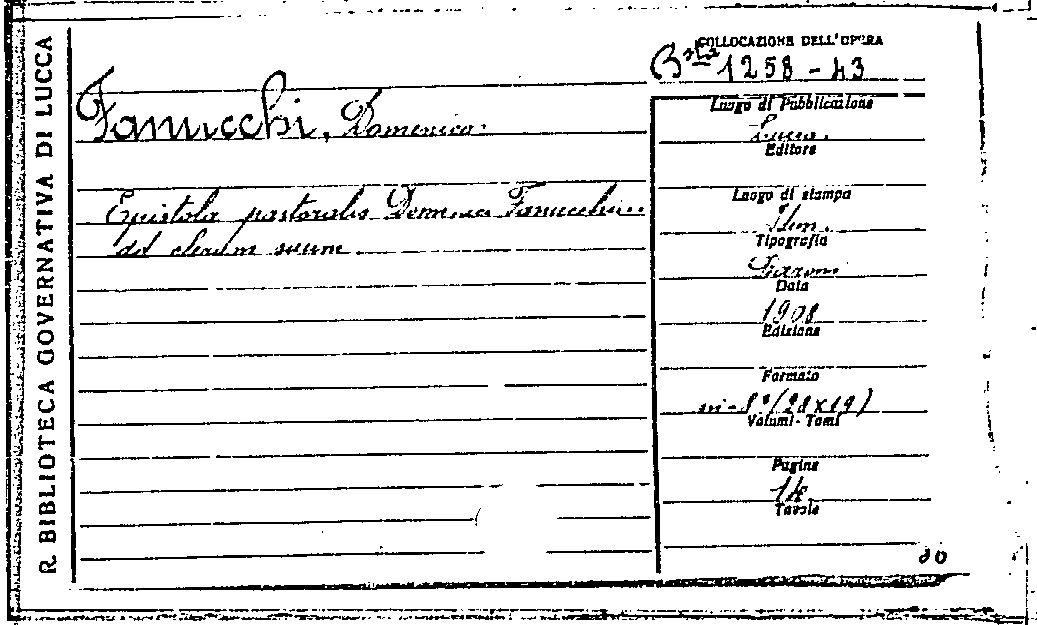 R. BIBLIOTECA GOVERNATIVA DI LUCCA
COLLOCAZIONE DELL'OPERA
Bsta 1258 - 43
Fanucchi, Domenico.
Epistola pastoralis Domenici Fanucchi
ad clerum suum
Luogo di Pubblicazione
Lucca.
Editore
Luogo di stampa
Idem.
Tipografia
Data
1908
Edizione
Formato
in-8° (28x19)
Volumi - Tomi
Pagine
14
Tavole